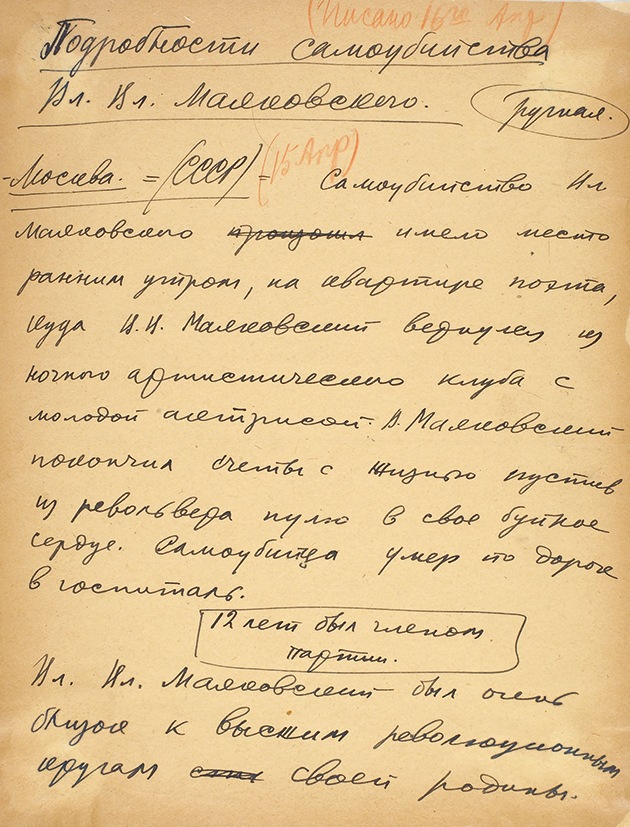 (Писано 16го Апр)
Подробности самоубийства
Вл. Вл. Маяковского.
- Москва. = (СССР) = (15 Апр) Самоубийство Вл
Маяковского произошл имело место
ранним утром, на квартире поэта,
куда В.В. Маяковский вернулся из
ночного артистического клуба с
молодой актрисой. В. Маяковский
покончил счеты с жизнью пустив
из револьвера пулю в свое буйное
сердце. Самоубийца умер по дороге
в госпиталь.
12 лет был членом
партии.
Вл. Вл. Маяковский был очень
близок к высшим революционным
кругам своей родины.